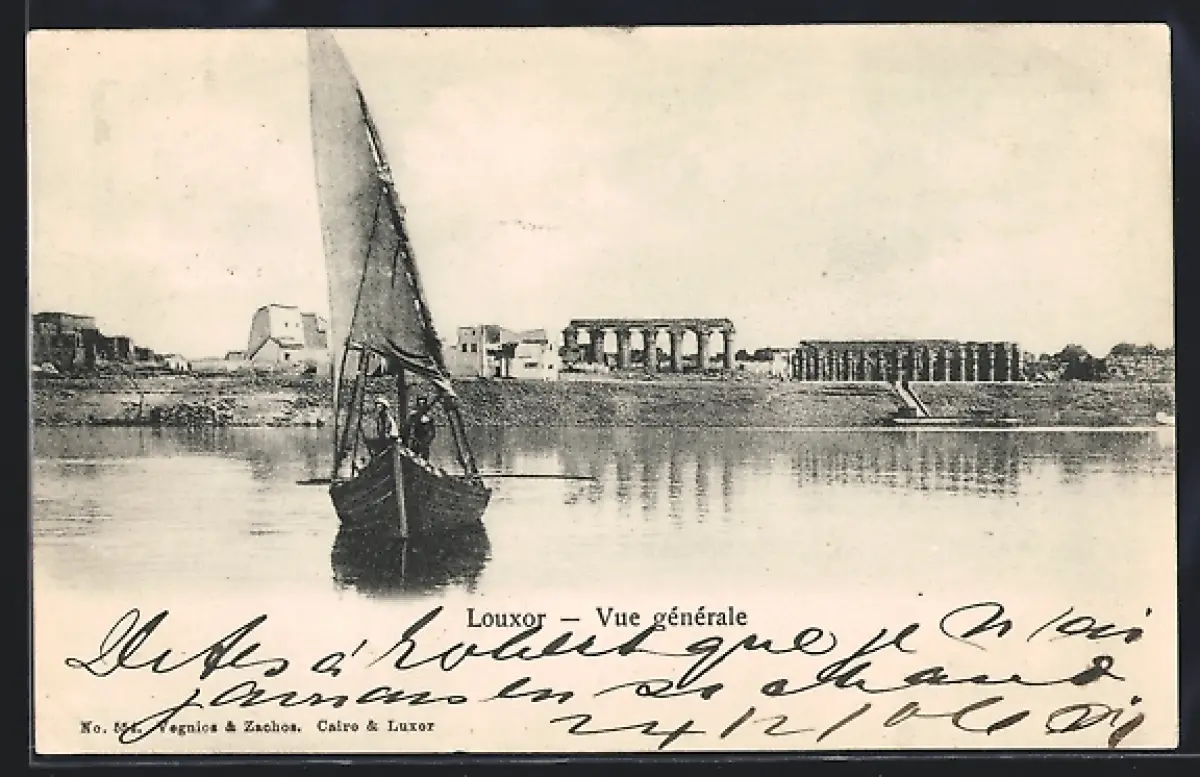 Louxor – Vue générale
Dites à Robert que je n'ai
jamais en si chaud
No. Vegnios & Zachos. Cairo & Luxor
24/12/